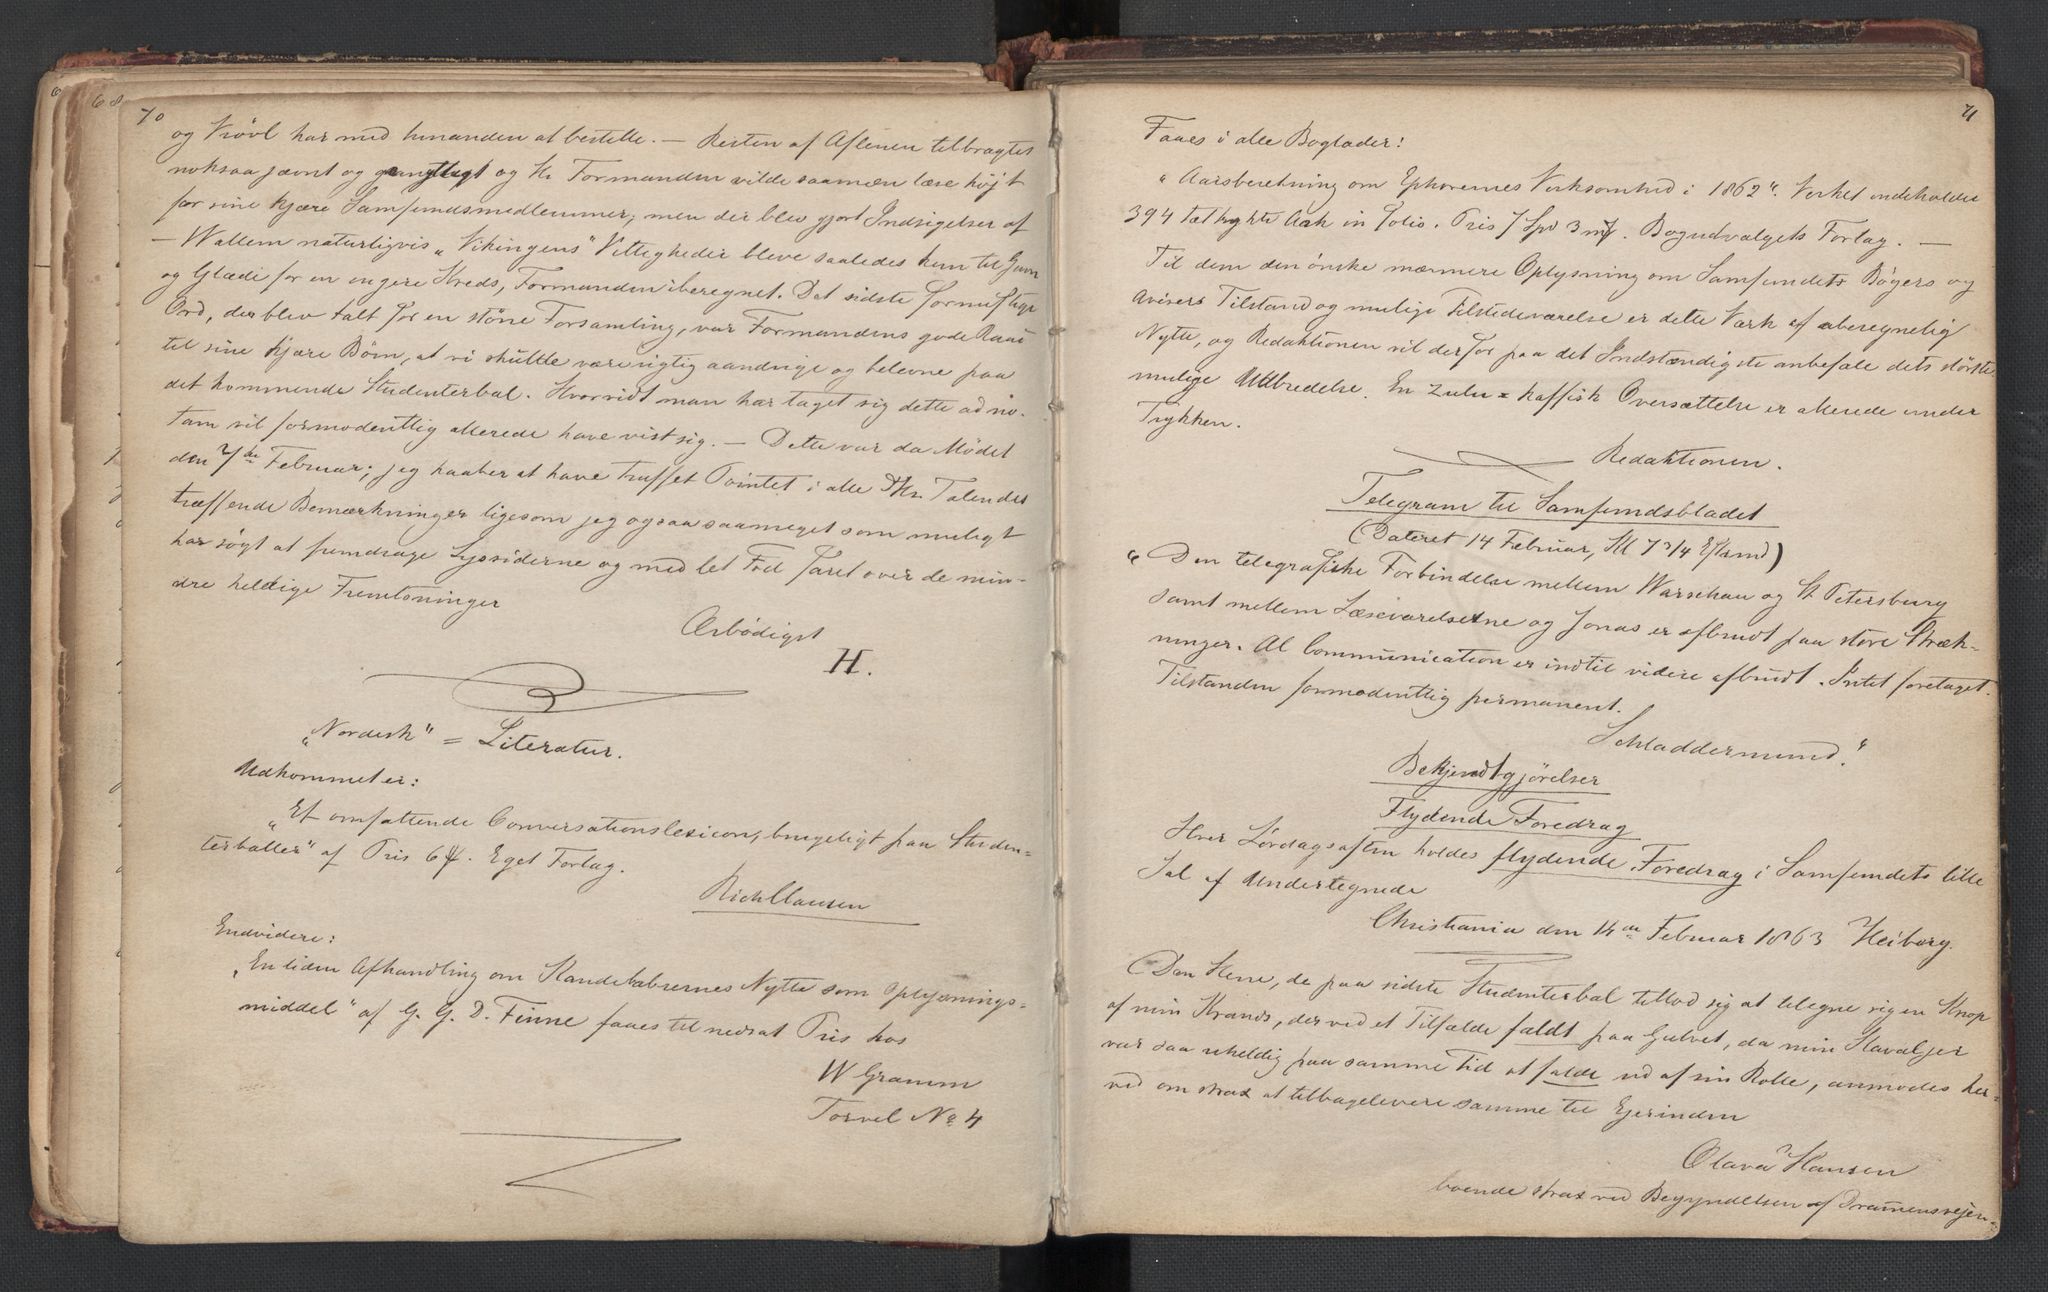 70
og Vrövl har med hinanden at bestille. — Resten af Aftenen tilbragtes
noksaa jævnt og og Hr Formanden vilde saamæn læse højt
for sine kjære Samfundsmedlemmer, men der blev gjort Indsigelser af
— Wallem naturligvis „Vikingens" Vittigheder bleve saaledes kun til Gavn
og Glæde for en engere Kreds, Formanden iberegnet. Det sidste fornuftige
Ord, der blev talt for en större Forsamling, var Formandens gode Raad
til sine kjære Börn, at vi skulde være rigtig aandrige og belevne paa
det kommende Studenterbal. Hvorvidt man har taget sig dette ad no-
tam vil formodentlig allerede have vist sig. — Dette var da Mödet
den 7de Februar; jeg haaber at have truffet Pointet i alle Hr. Talendes
træffende Bemærkninger ligesom jeg ogsaa saameget som muligt
har sögt at fremdrage Lyssiderne og med let Fod faret over de min-
dre heldige Fremtoninger
Ærbödigst
H.
„Nordisk" = Literatur.
Udkommet er:
„Et omfattende Conversationslexicon, brugeligt paa Studen-
terballer" af Pris 6 β. Eget Forlag.
Rich Clausen
Endvidere:
„En liden Afhandling om Kandelabrernes Nytte som Oplysnings-
middel" af G. G. D. Finne faaes til nedsat Pris hos
W Gramm
Torvet No 4
71
Faaes i alle Boglader:
„Aarsberetning om Ephorernes Virksomhed i 1862". Verket indeholder
394 tæt trykte Ark in folio. Pris 7 Spd 3 mf. Bogudvalgets Forlag. —
Til dem der önske nærmere Oplysning om Samfundets Bögers og
Avisers Tilstand og mulige Tilstedeværelse er dette Værk af uberegnelig
Nytte, og Redaktionen vil derfor paa det Indstændigste anbefale dets störst-
mulige Udbredelse. En Zulu = kaffisk Oversættelse er allerede under
Trykken.
Redaktionen.
Telegram til Samfundsbladet
(Dateret 14 Februar, Kl 7 3/4 Efterm)
„Den telegrafiske Forbindelse mellem Warschau og St Petersburg
samt mellem Læseværelserne og Jonas er afbrudt paa store Stræk-
ninger. Al Communication er indtil videre afbrudt. Intet foretaget.
Tilstanden formodentlig permanent.
Schladdermund."
Bekjendtgjörelser
Flydende Foredrag
Hver Lördagsaften holdes flydende Foredrag i Samfundets lille
Sal af Undertegnede
Christiania den 14de Februar 1863 Heiberg.
Den Herre, de paa sidste Studenterbal tillod sig at tilegne sig en Knop
af min Krands, der ved et Tilfælde faldt paa Gulvet, da min Kavaljer
var saa uheldig paa samme Tid at falde ud af sin Rolle, anmodes her-
ved om strax at tilbagelevere samme til Ejerinden
Olava Hansen
boende strax ved Begyndelsen af Drammensvejen.